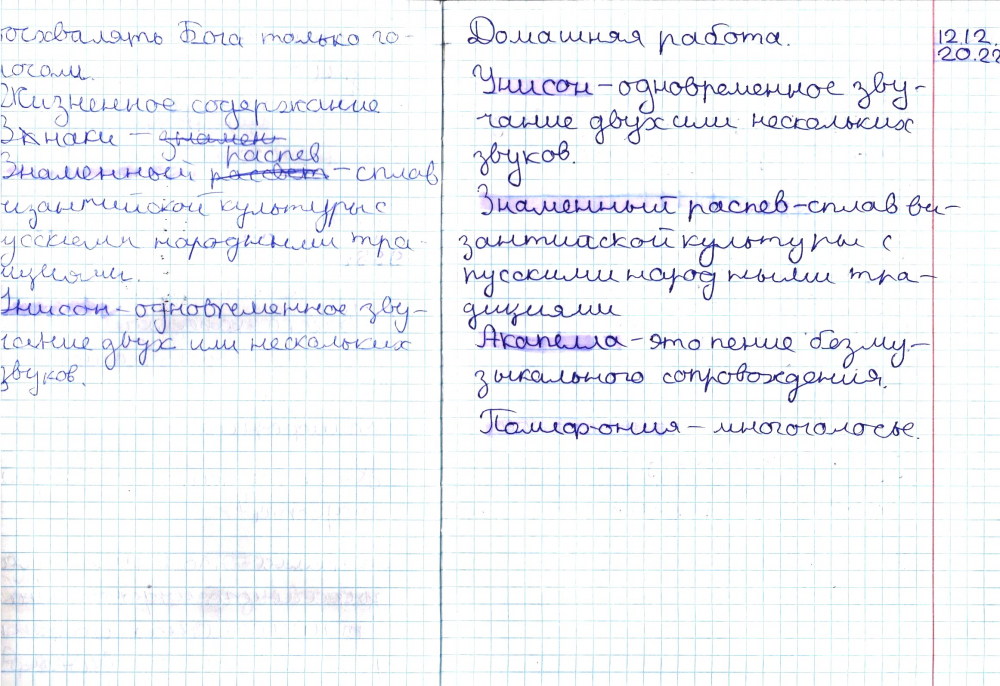 восхвалять Бога только го-
лосом.
Жизненное содержание
Знаки – знамен
распев
Знаменный рассвет – сплав
византийской культуры с
русскими народными тра-
дициями.
Унисон – одновременное зву-
чание двух или нескольких
звуков.
Домашняя работа.
12.12.
20.22
Унисон – одновременное зву-
чание двух или нескольких
звуков.
Знаменный распев – сплав ви-
зантийской культуры с
русскими народными тра-
дициями
Акапелла – это пение без му-
зыкального сопровождения.
Полифония – многоголосье.